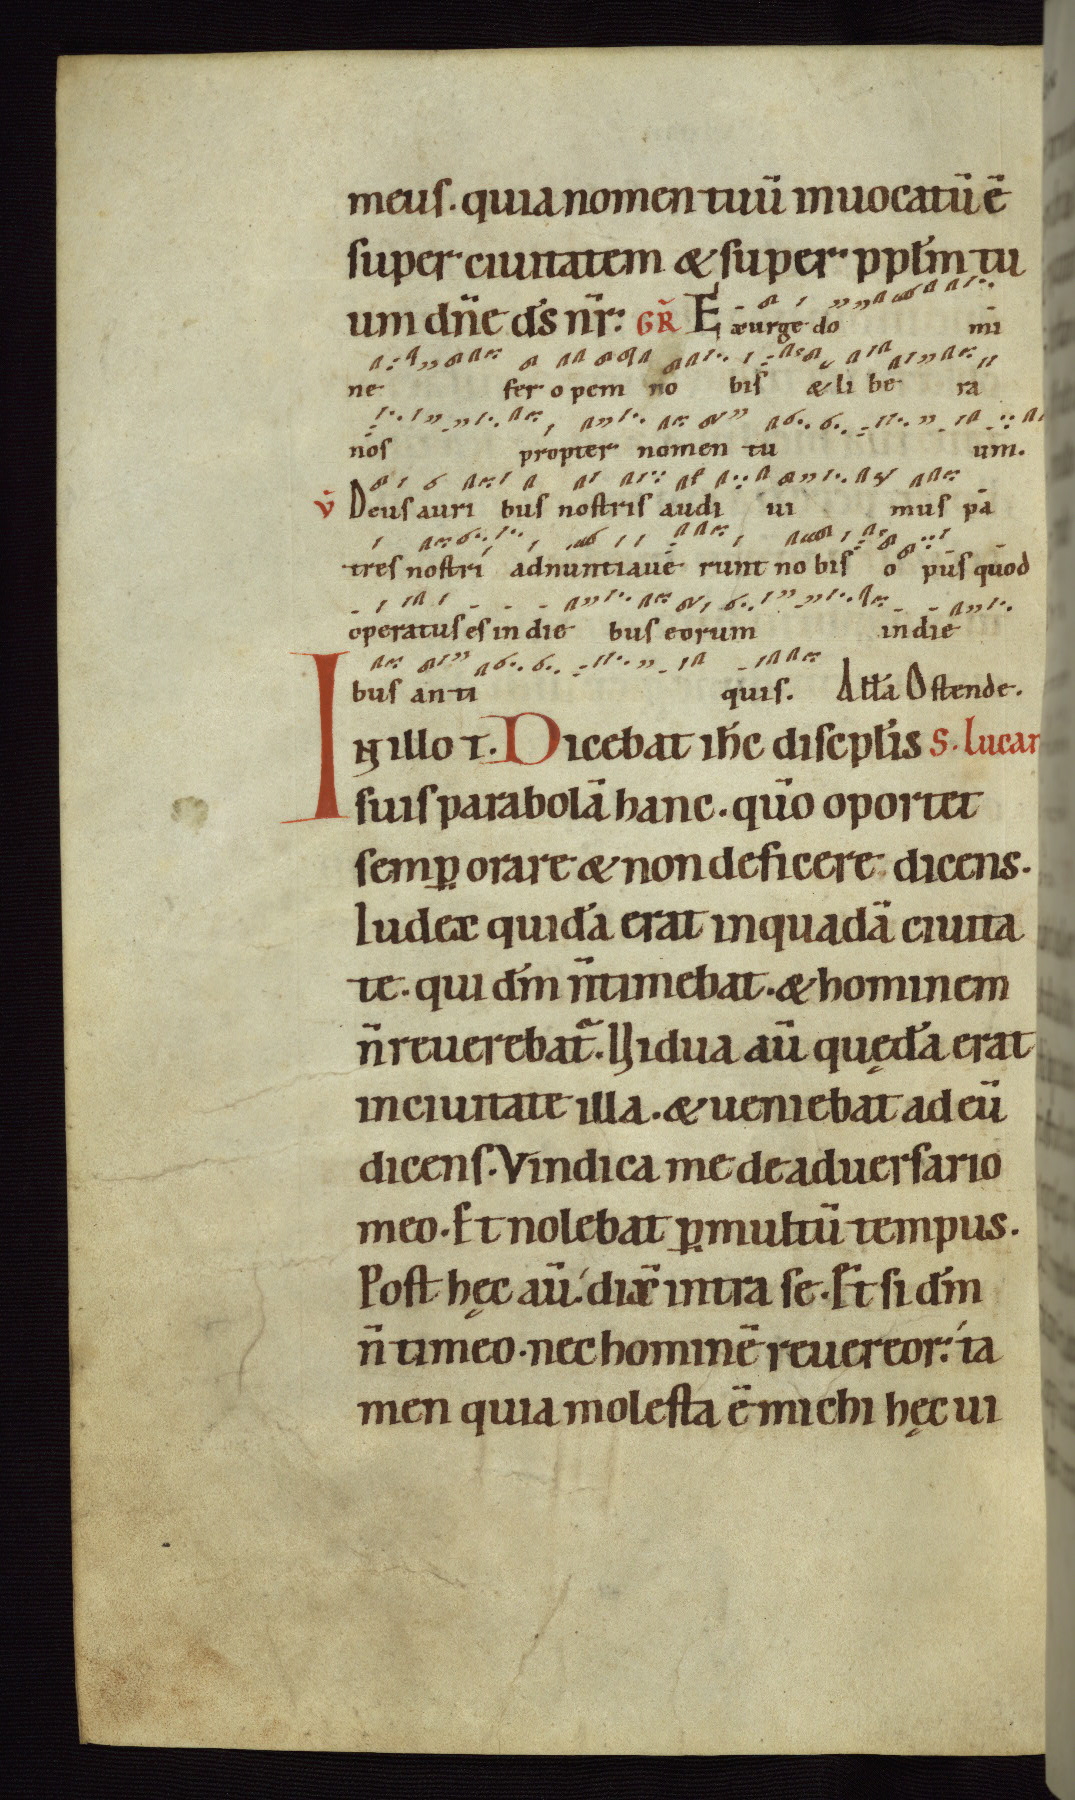 meus. quia nomen tuū inuocatū ē
super ciuitatem & super pplm̄ tu
um dn̄e ds̄ nr̄: GR̄ Exurge do mi
ne fer opem no bis & li be ra
nos propter nomen tu um.
V̄ Deus auri bus nostris audi ui mus pa
tres nostri adnuntiaue runt no bis o pus quod
operatus es in die bus eorum in die
bus anti quis. All̄a Ostende.
In illo t. Dicebat ih̄c discpl̄is S. Lucam
suis parabolā hanc. qūo oportet
semꝑ orare & non deficere dicens.
Iudex quidā erat in quadā ciuita
te. qui dm̄ n̄ timebat. & hominem
n̄ reuerebat᷑. Uidua aū quędā erat
in ciuitate illa. & ueniebat ad eū
dicens. Vindica me de aduersario
meo. Et nolebat ꝑ multū tempus.
Post hęc aū. dix̄ intra se. Et si dm̄
n̄ timeo. nec hominē reuereor: ta
men quia molesta ē michi hęc ui